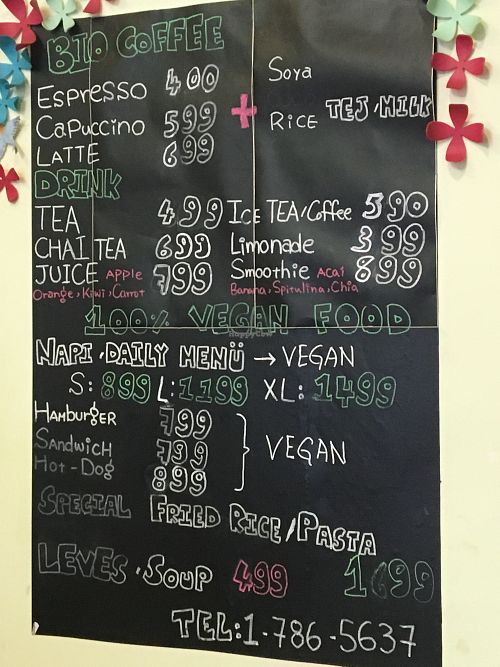 BIO COFFEE
Espresso 400
Capuccino 599
LATTE 699
+
Soya
RICE TEJ, MILK
DRINK
TEA 499
CHAI TEA 699
JUICE APPLE 799
Orange, Kiwi, Carrot
ICE TEA/Coffee 590
Limonade 399
Smoothie Acai 899
Banana, Spirulina, Chia
100% VEGAN FOOD
NAPI, DAILY MENÜ → VEGAN
S: 899 L: 1199 XL: 1499
HAMBURGER 799
SANDWICH 799
HOT-DOG 899
} VEGAN
SPECIAL FRIED RICE/PASTA
1699
LEVES, SOUP 499
TEL:1-786-5637